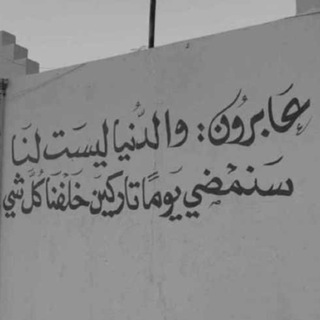 عابرون: والدُنيا ليسَت لنا
سَنمْضي يَومًا تاركينَ خَلْفنَا كُل شي